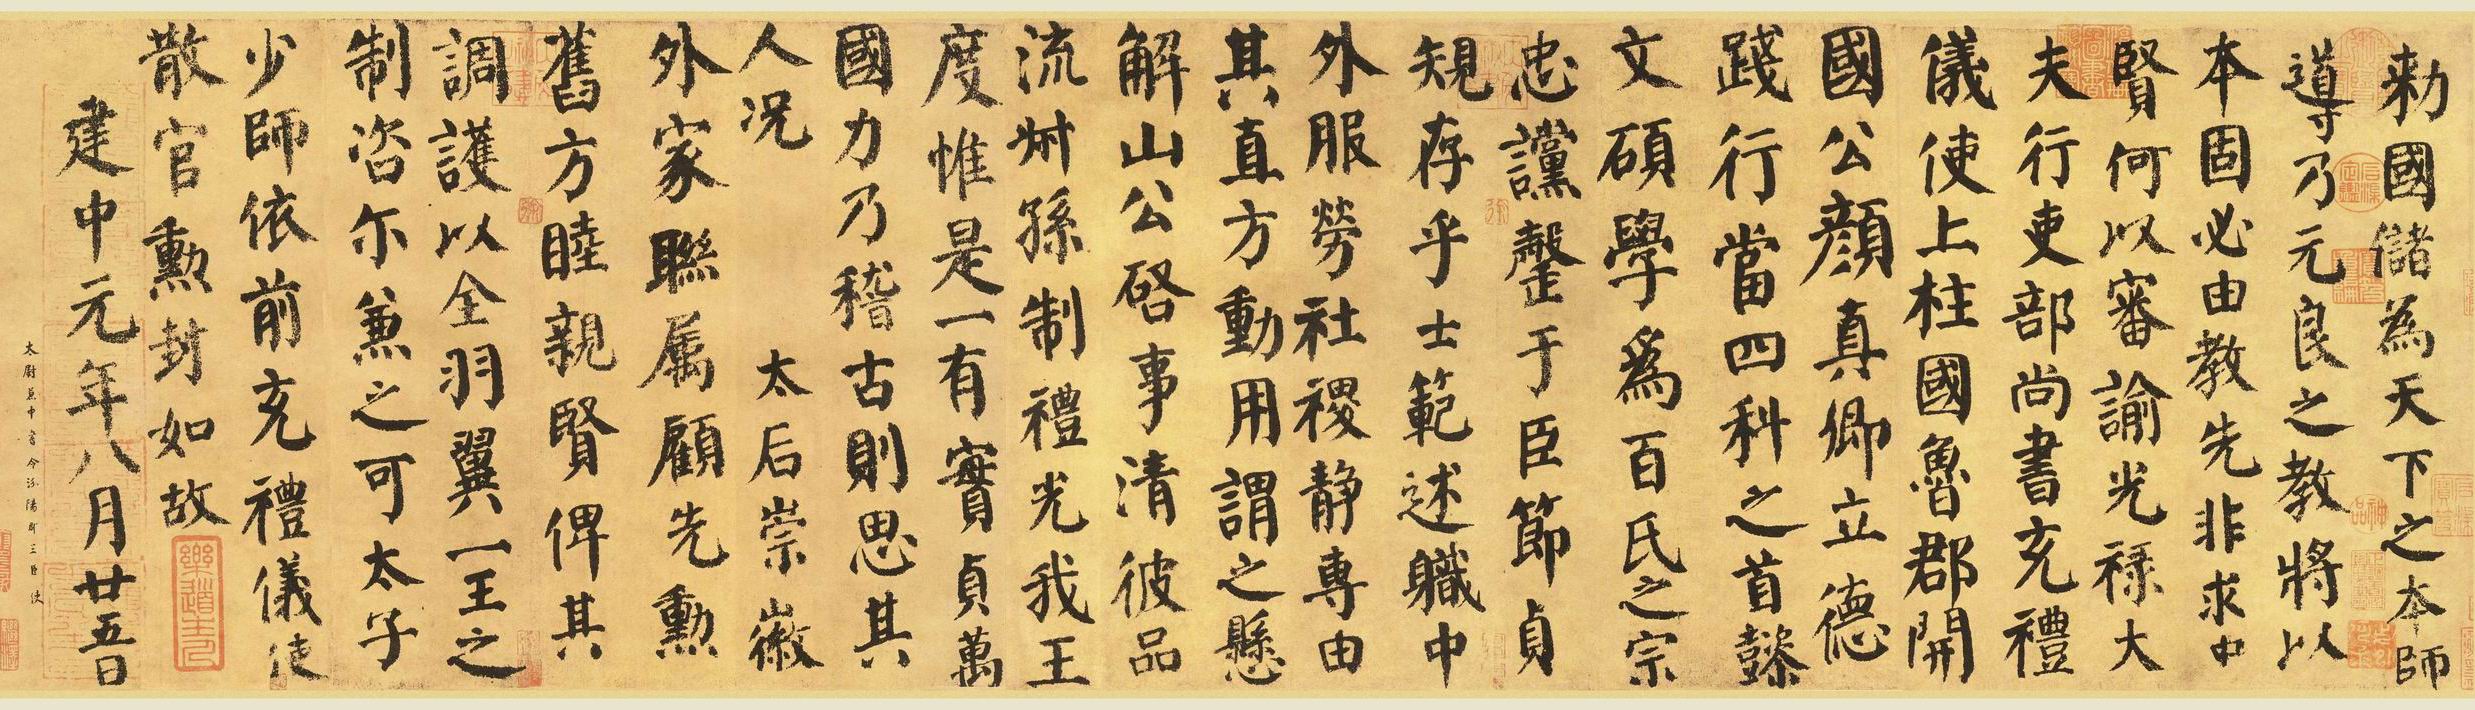 勑國儲為天下之本師
導乃元良之教將以
本固必由教先非求中
賢何以審諭光祿大
夫行吏部尚書充禮
儀使上柱國魯郡開
國公顔真卿立德
踐行當四科之首懿
文碩學為百氏之宗
忠讜罄于臣節貞
規存乎士範述職中
外服勞社稷静專由
其直方動用謂之懸
解山公啓事清彼品
流叔孫制禮光我王
度惟是一有實貞萬
國力乃稽古則思其
人况 太后崇徽
外家聯属顧先勲
舊方睦親賢俾其
調護以全羽翼一王之
制咨尔兼之可太子
少師依前充禮儀使
散官勲封如故
建中元年八月廿五日